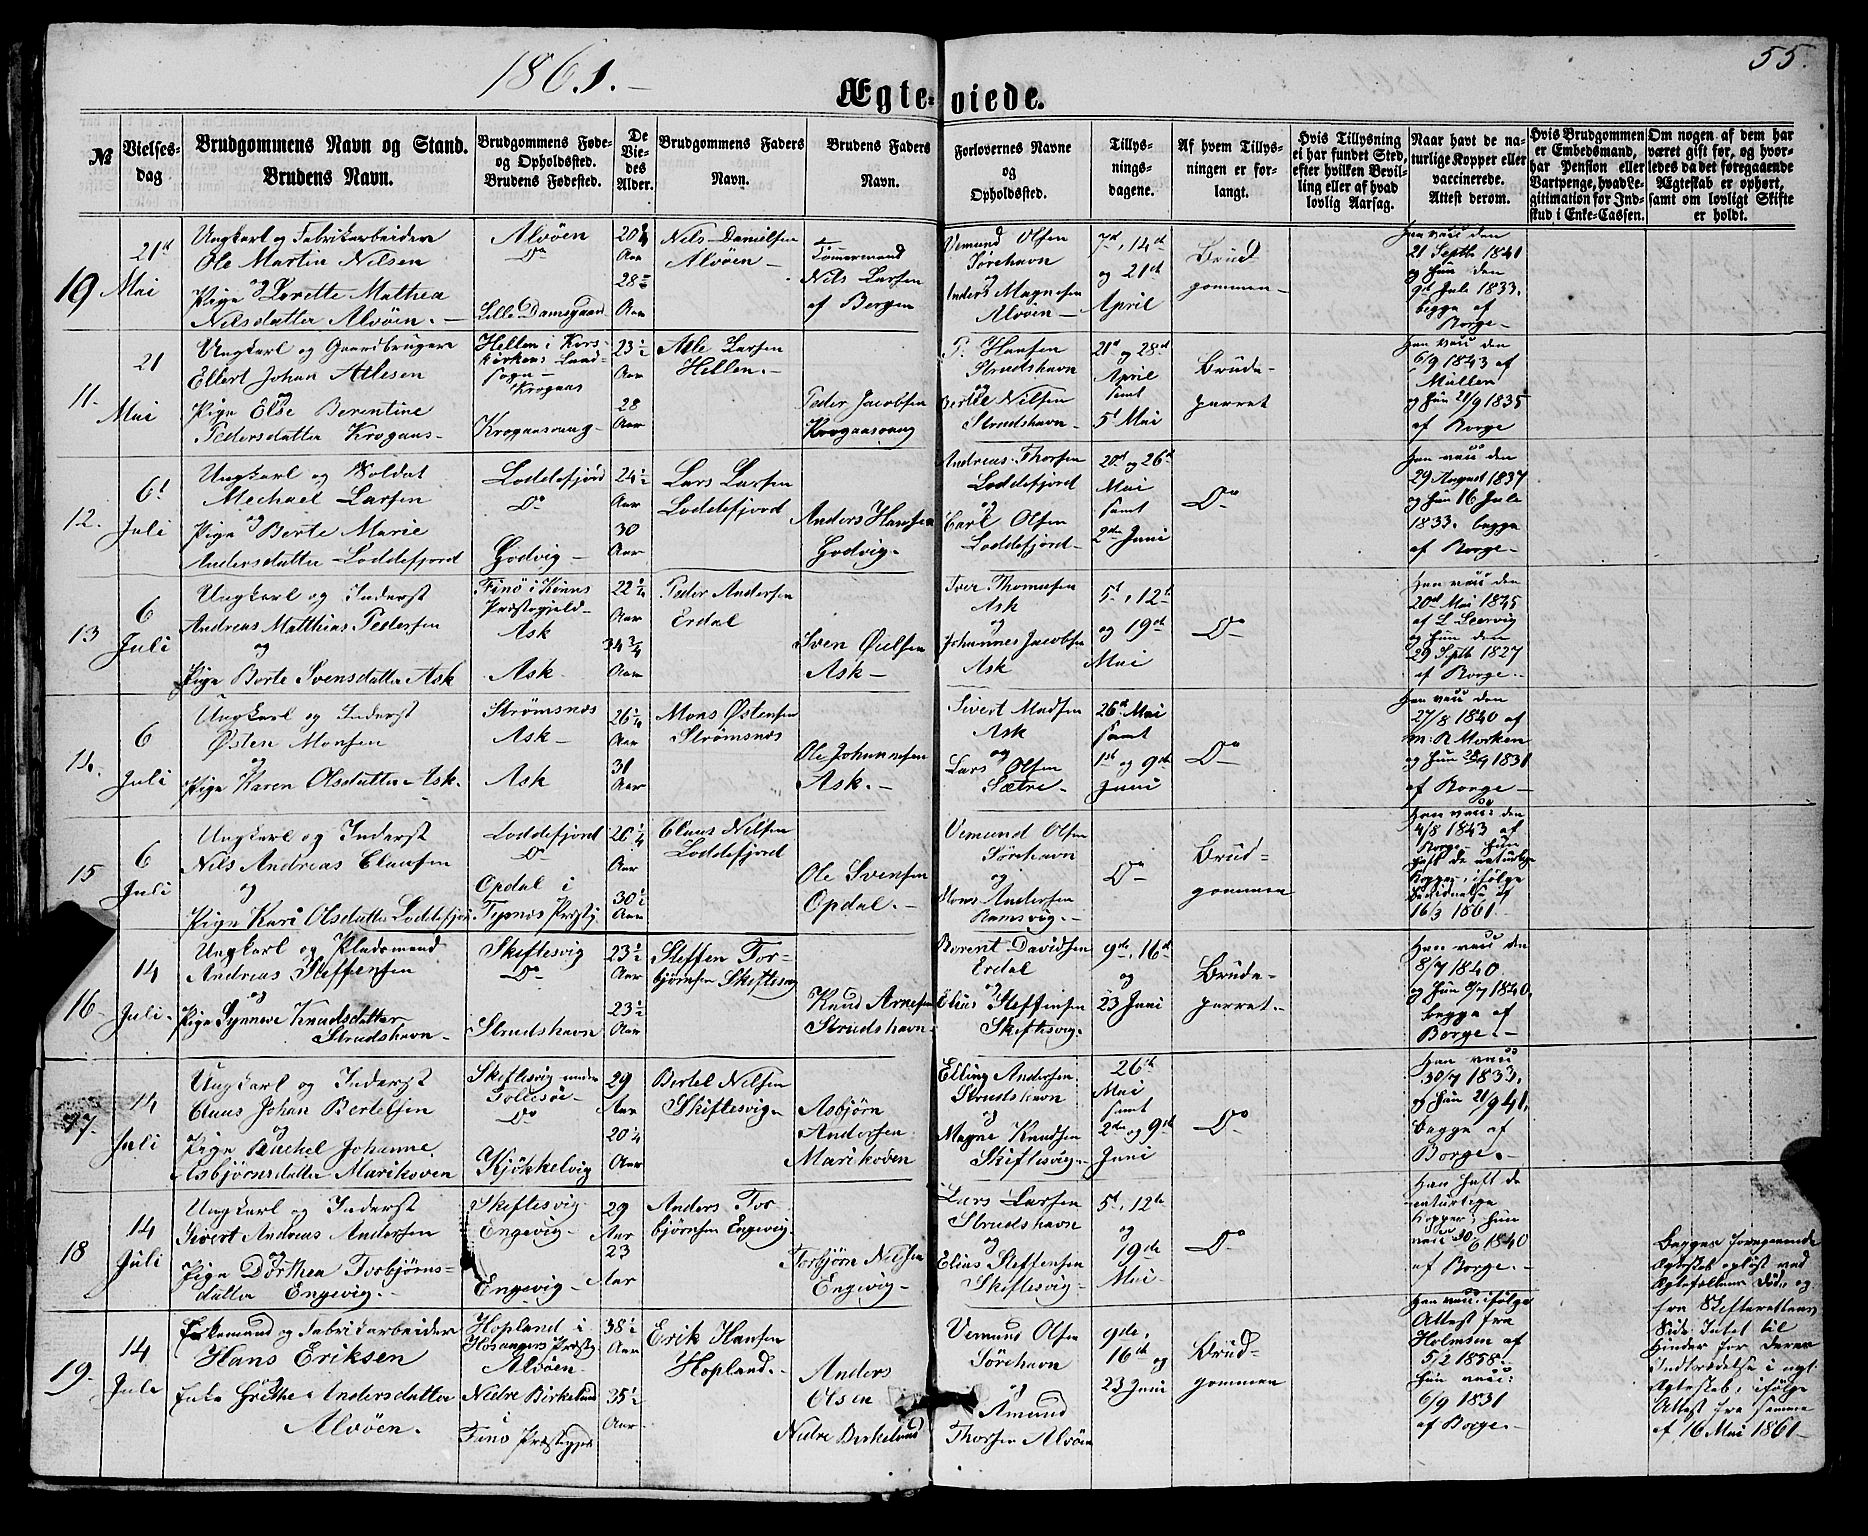 1861.
55.
Ægte-viede.
№
Vielses-
dag
Brudgommens Navn og Stand.
Brudens Navn.
Brudgommens Føde-
og Opholdssted.
Brudens Fødested.
De
Vie-
des
Alder.
Brudgommens Faders
Navn.
Brudens Faders
Navn.
Forlovernes Navne
og
Opholdssted.
Tillys-
nings-
dagene.
Af hvem Tillys-
ningen er for-
langt.
Hvis Tillysning
ei har fundet Sted,
efter hvilken Bevil-
ling eller af hvad
lovlig Aarsag.
Naar havt de na-
turlige Kopper eller
vaccinerede.
Attest derom.
Hvis Brudgommen
er Embedsmand,
har Pension eller
Vartpenge, hvad Le-
gitimation for Ind-
skud i Enke-Cassen.
Om nogen af dem har
været gift før, og hvor-
ledes da det foregaaende
Ægteskab er ophørt,
samt om lovligt Skifte
er holdt.
10
21d
Mai
Ungkarl og Fabrikarbeider
Ole Martin Nilsen
og
Pige Lorette Mathea
Nilsdatter Alvøen.
Alvøen
Do
Lille Damsgaard
Aar
28
Aar
Nils Danielsen
Alvøen
Tømermand
Nils Larsen
af Bergen
Vemund Olsen
Tørehavn
og
Anders Magnesen
Alvøen
7d, 14d
og 21d
April
Brud
gommen
Han vacc den
21 Septb 1841
og hun den
9d Juli 1833.
begge af
Borge
11.
21
Mai
Ungkarl og Gaardbruger
Ellert Johan Atlesen
og
Pige Else Berentine
Pedersdatter Krogaas
Hellen i Kors-
kirkens Land-
sogn
Krogaas
Krogaasvaag
23 1/2
Aar
28
Aar
Atle Larsen
Hellen.
Peder Jacobsen
Krogaasvaag
P. Hansen
Strudshavn
og
Bertel Nilsen
Strudshavn
21d og 28d
April
samt
5d Mai
Brude-
parret
Han vacc den
6/9 1843 af
Müller
og hun 21/9 1835
af Borge
12.
6d
Juli
Ungkarl og Soldat
Mechael Larsen
og
Pige Berte Marie
Andersdatter Loddefjord
Loddefjord
Do
Godvig
24 1/2
Aar
30
Aar
Lars Larsen
Loddefjord
Anders Hansen
Godvig
Andreas Thorsen
Loddefjord
og
Carl Olsen
Loddefjord
20d og 26d
Mai
samt
2de Juni
Do
Han vacc den
29 August 1837
og hun 16 Jule
1833. begge
af Borge
13
6
Juli
Ungkarl og Inderst
Andreas Matthias Pedersen
og
Pige Berte Svensdatter Ask
Finø i Kinns
Præstegjeld
Ask
Ask
22 1/4
Aar
34 3/4
Aar
Peder Andersen
Erdal
Sven Øielsen
Ask
Iver Thomasen
Ask
og
Johannes Jacobsen
Ask
5d, 12d
og 19d
Mai
Do
Han vacc den
20d Mai 1845
af L Leervig
og hun den
29 Septb 1827
af Borge
14.
6
Juli
Ungkarl og Inderst
Østen Monsen
og
Pige Karen Olsdatter Ask.
Strømsnes
Ask
Ask
26 1/4
Aar
31
Aar
Mons Østensen
Strømsnes
Ole Johannesen
Ask.
Sivert Madsen
Ask
og
Lars Olsen
Sætre
26d Mai
samt
1st og 9de
Juni
Do
Han vacc den
27/8 1840 af
M. R Morken
og hun 1831
af Borge
15
6
Juli
Ungkarl og Inderst
Nils Andreas Clausen
og
Pige Kari Olsdatter Loddefjor
Loddefjord
Do
Opdal i
Tysnæs Præstg.
26 1/4
Aar
30 1/2
Aar
Claus Nilsen
Loddefjord
Ole Svensen
Opdal.
Vemund Olsen
Tørehavn
og
Mons Andersen
Ramsvig.
Do
Brud-
gommen
Han vacc: den
4/8 1843 af
Borge. hun
haft de naturlige
Kopper, ifølge
16/3 1861.
16
14
Juli
Ungkarl og Pladsmand
Andreas Steffensen
og
Pige Synneve Knudsdatter
Strudshavn
Skiftesvig
Do
Strudshavn
23 1/2
Aar
23 1/2
Aar
Steffen Tor-
bjørnsen Skiftesvig
Knud Arnesen
Strudshavn
Berent Davidsen
Erdal
og
Elias Steffensen
Skiftesvig
9de, 16d
og
23 Juni
Brude-
parret.
Han vacc den
8/7 1840.
og hun 9/7 1840,
begge af
Borge.
17.
14
Juli
Ungkarl og Inderst
Claus Johan Bertelsen
og
Pige Rachel Johanne
Asbjørnsdatter Marikoven
Skiftesvig under
Follesøe
Do
Kjøkkelvig
29
Aar
20 1/4
Aar
Bertel Nilsen
Skiftesvig
Asbjørn
Andersen
Marikoven
Elling Andersen
Strudshavn
og
Magne Knudsen
Skiftesvig
26de
Mai
samt
2de og 9de
Juni
Do
Han vacc
30/7 1833,
og hun 21/9 41,
begge af
Borge.
18
14
Juli
Ungkarl og Inderst
Sivert Andreas Andersen
og
Pige Dorthea Torbjørns-
datter Engevig.
Skiftesvig
Engevig
Engevig
29
Aar
23
Aar
Anders Tor
bjørnsen Engevig
Torbjørn Nilsen
Engevig
Lars Larsen
Strudshavn
og
Elias Steffensen
Skiftesvig
5d, 12te
og
19de
Mai
Do
Han haft de
naturlige
Kopper; hun
vacc 30/6 1840
af Borge.
19.
14
Jule
Enkemand og Fabrikarbeider
Hans Eriksen
og
Enke Grethe Andersdatter
Alvøen.
Hopland i
Hosangers Præstg
Alvøen
Nedre Birkeland
i
Finø Præstegjeld
38 1/2
Aar
35 1/2
Aar
Erik Hansen
Hopland.
Anders
Olsen
Nedre Birkeland
Vemund Olsen
Tørehavn
og
Amund
Thorsen Alvøen
9de,
16th og
23 Juni
Brud-
gommen
Han vacc: ifølge
Attest fra
Holmsen af
5/2 1858.
hun vacc:
6/9 1831
af Borge
Begges foregaaende
Ægteskab opløst ved
Ægtefællens Død, og
fra Skifterettens
Side Intet til
Hinder for deres
Indtrædelse i nyt
Ægteskab, ifølge
Attest fra samme
af 16 Mai 1861